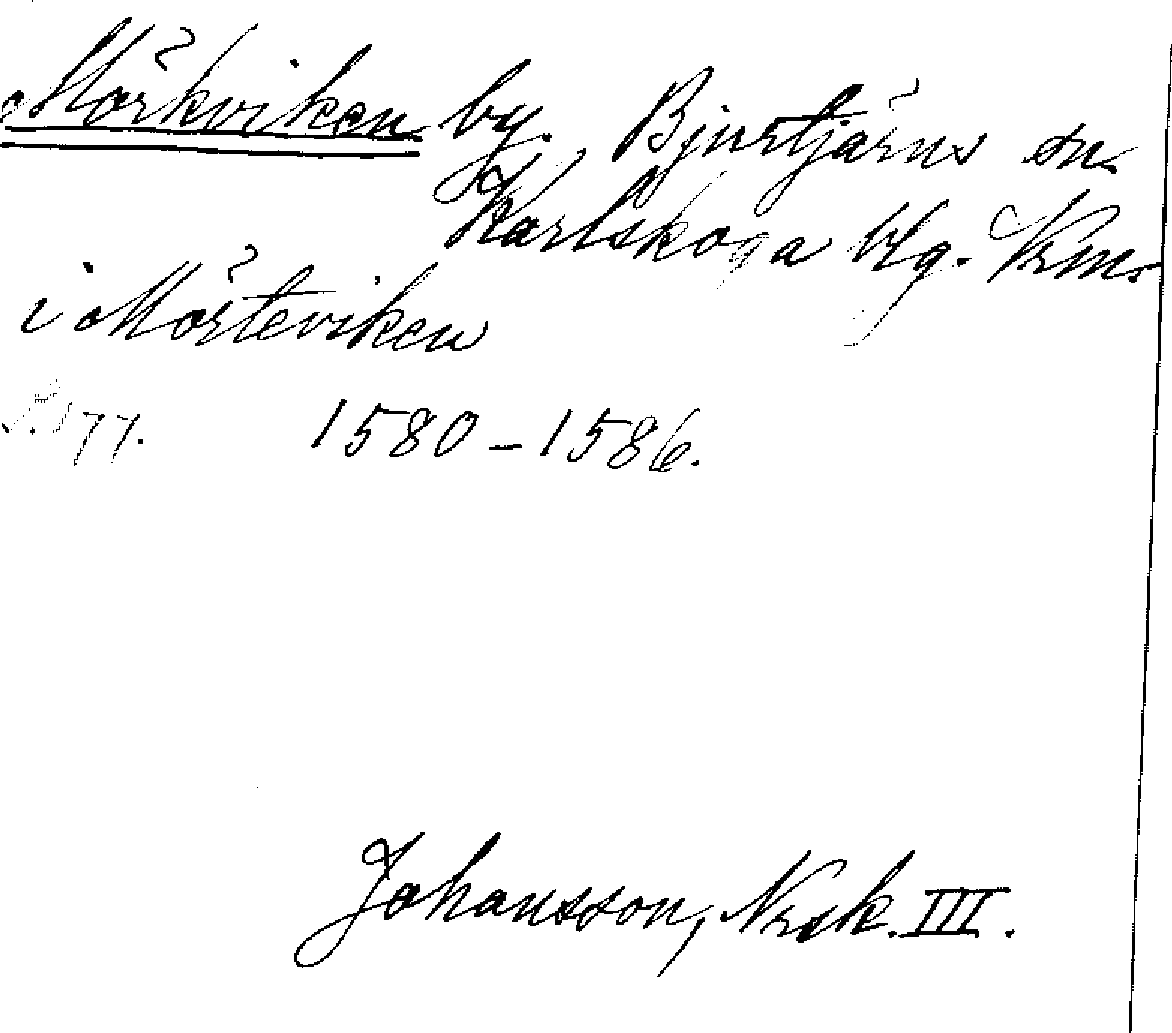 Mörkviken by. Bjurtjärns sn.
Karlskoga bg. Vrm.
i Mörteviken
S. 177. 1580-1586.
Johansson, Nrsk. III.